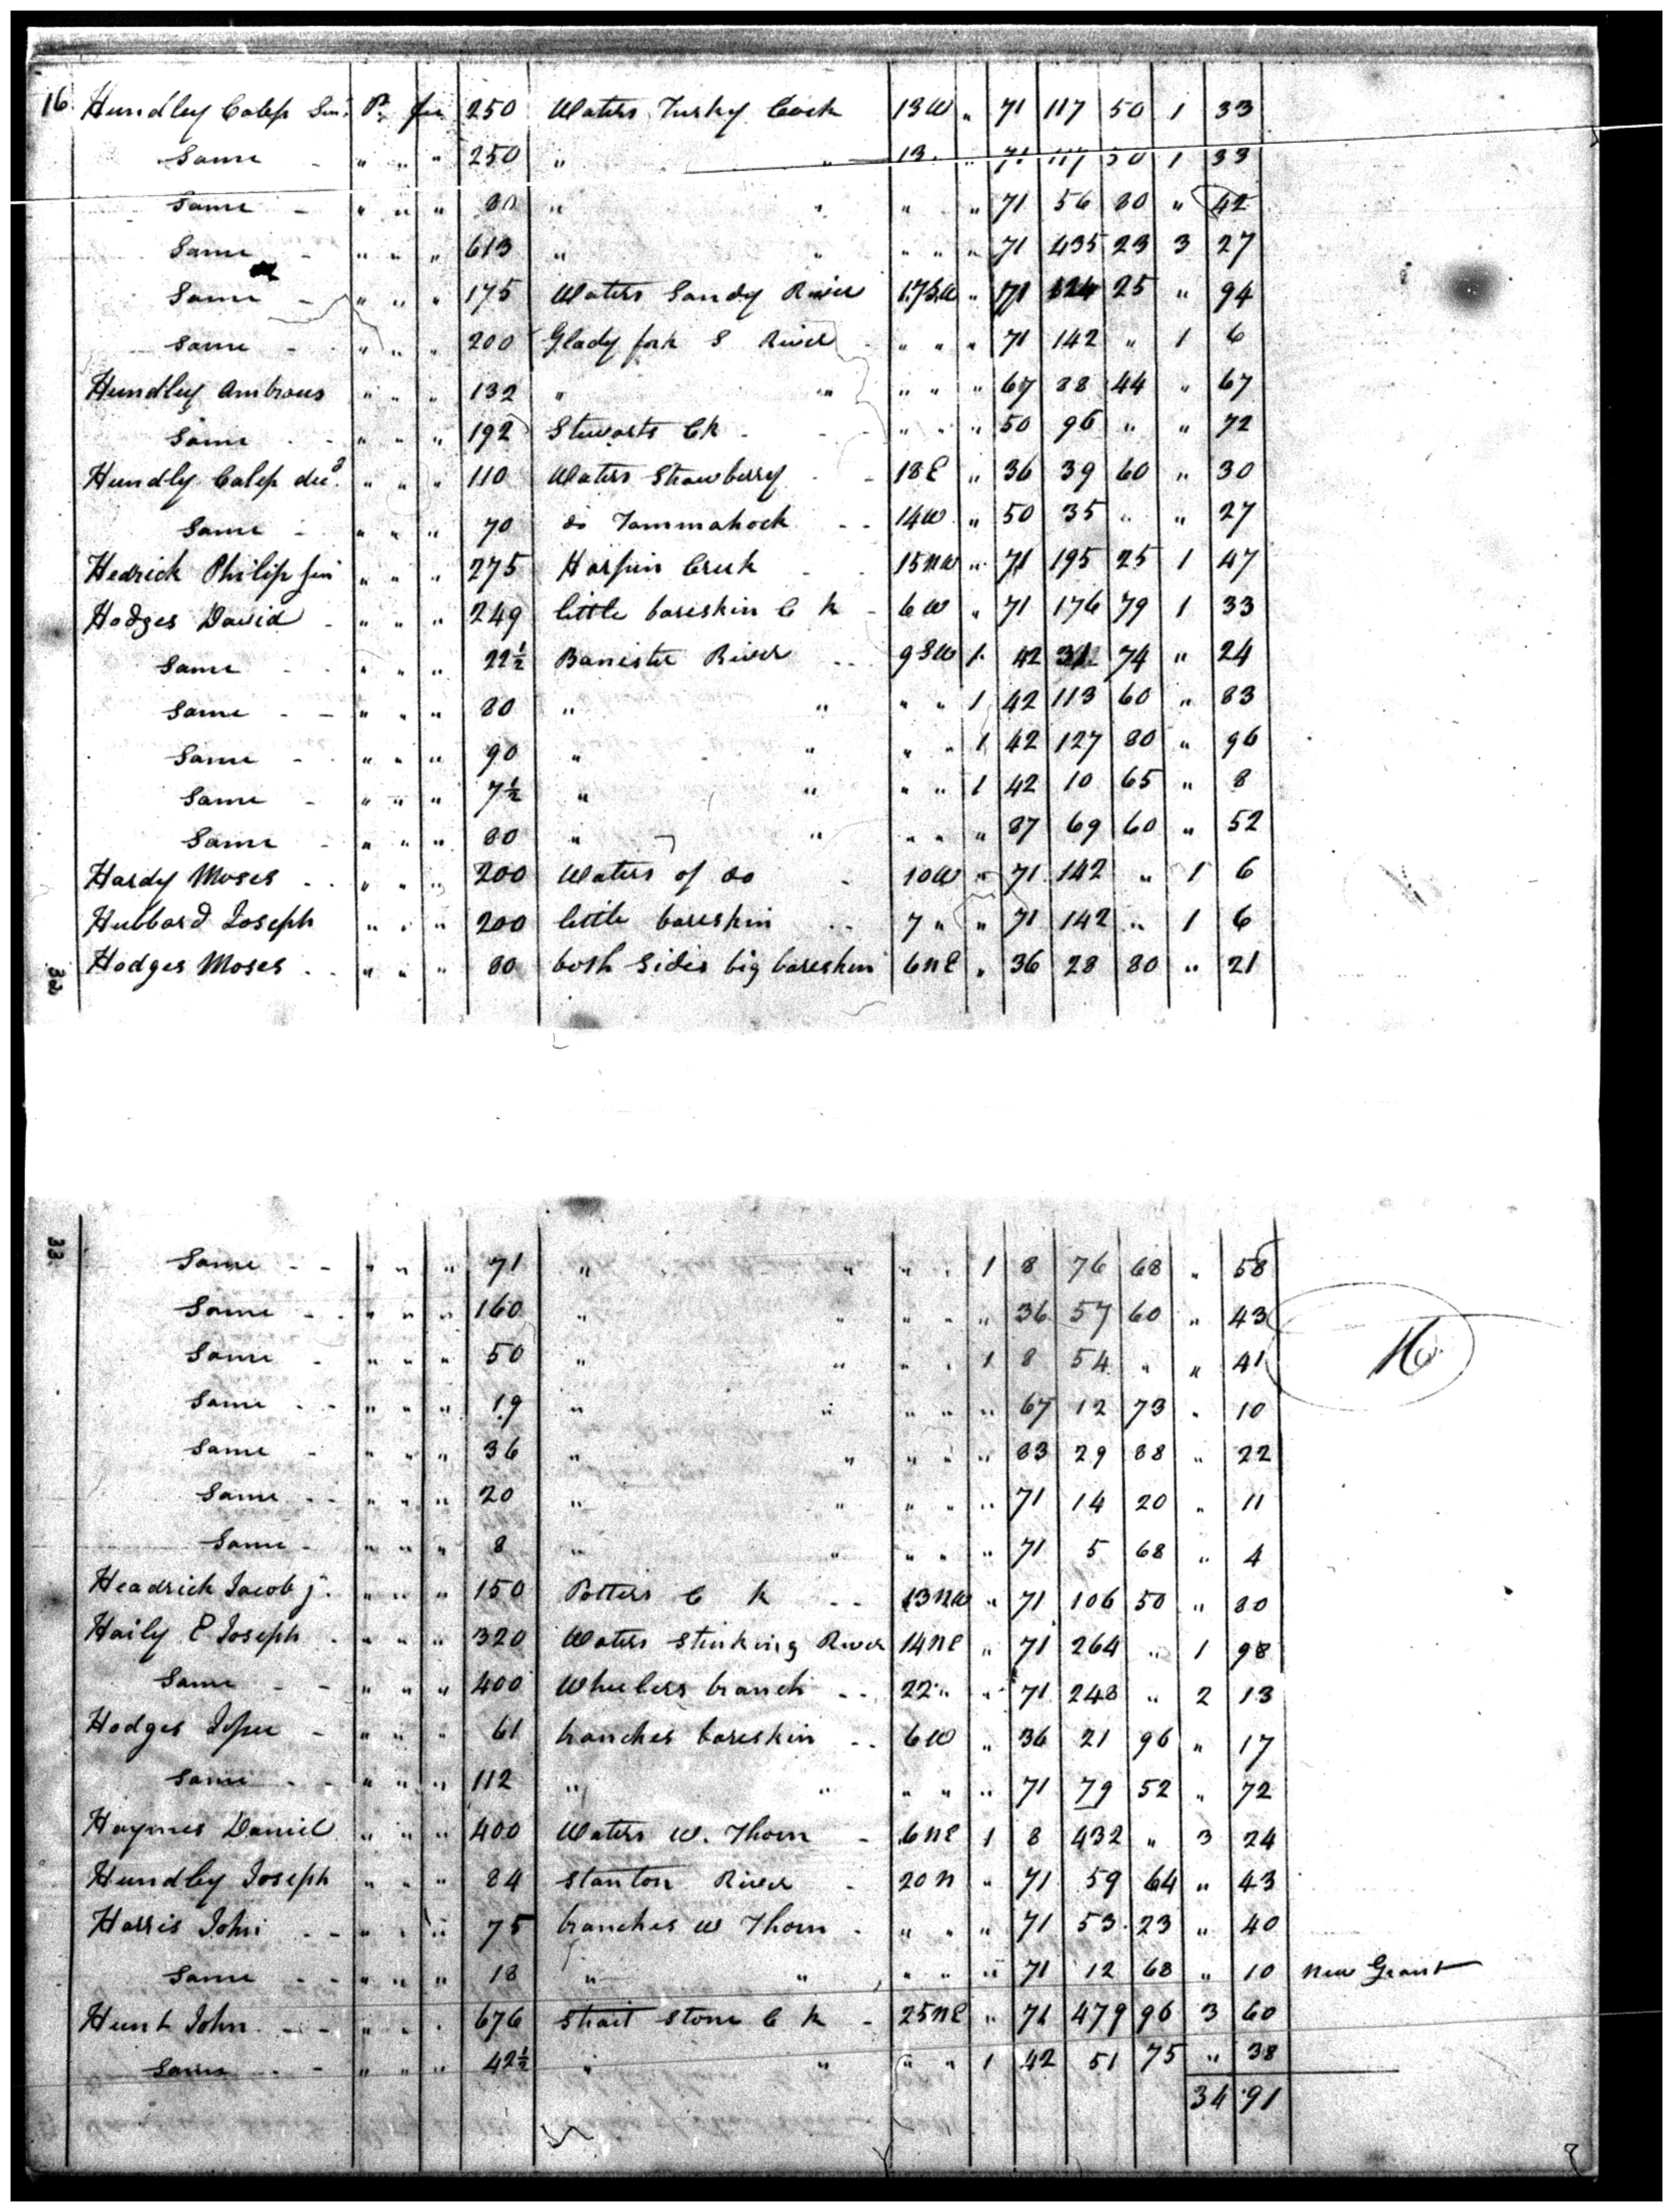 16. Hundley Calep Sen. P. fee 250 Waters Turky Cock 13 W " 71 117 50 1 33
Same - " " " 250 " " 13 " " 71 117 50 1 33
Same - " " " 80 " " " " 71 56 80 " 42
Same - " " " 613 " " " " " 71 435 23 3 27
Same - " " " 175 Waters Sandy River 17SW " 71 124 25 " 94
Same - - " " " 200 Glady fork S River - " " " 71 142 " 1 6
Hundley Ambrous " " " 132 " " " " " 67 88 44 " 67
Same - - " " " 192 Stewarts Ck - - - " " " 50 96 " " 72
Hundly Calep decd. " " " 110 Waters Strawberry - - 18 E " 36 39 60 " 30
Same - " " " 70 do Tammahock - - 14W " 50 35 " " 27
Hedrick Philip Jun " " " 275 Harpin Creek - - 15NW " 71 195 25 1 47
Hodges David - " " " 249 little bareskin C k - 6 W " 71 176 79 1 33
Same - - " " " 22½ Banister River - - 9 SW 1. 42 31 74 " 24
Same - - " " " 80 " " " " 1 42 113 60 " 83
Same - - " " " 90 " " " " 1 42 127 80 " 96
Same - " " " 7½ " " " " 1 42 10 65 " 8
Same - " " " 80 " " " " " 87 69 60 " 52
Hardy Moses - - " " " 200 Waters of do - 10W " 71 142 " 1 6
Hubbard Joseph " " " 200 little bareskin - - 7 " " 71 142 " 1 6
32 Hodges Moses - - " " " 80 both Sides big bareskin 6 NE " 36 28 80 " 21
33
Same - - " " " 71 " " " " 1 8 76 68 " 58
Same - - " " " 160 " " " " " 36 57 60 " 43
Same - " " " 50 " " " " 1 8 54 " " 41 16
Same - - " " " 19 " " " " " 67 12 73 " 10
Same - " " " 36 " " " " " 83 29 88 " 22
Same - - " " " 20 " " " " " 71 14 20 " 11
Same - " " " 8 " " " " " 71 5 68 " 4
Headrick Jacob j. " " " 150 Potters C k - - 13NW " 71 106 50 " 80
Haily E Joseph - " " " 320 Waters Stinking River 14NE " 71 264 " 1 98
Same - - " " " 400 Wheelers branch - - 22 " " 71 248 " 2 13
Hodges - " " " 61 branches bareskin - - 6 W " 36 21 96 " 17
Same - - " " " 112 " " " " " 71 79 52 " 72
Haymes Daniel " " " 400 Waters W. Thorn - 6 NE 1 8 432 " 3 24
Hundley Joseph " " " 84 Stanton River - 20 N " 71 59 64 " 43
Harris John - - " " " 75 branches W Thorn - " " " 71 53 23 " 40
Same - - " " " 18 " " " " " 71 12 68 " 10 New Grant
Hunt John - - " " " 676 Strait Stone C k - 25NE " 71 479 96 3 60
Same - - " " " 42½ " " " " 1 42 51 75 " 38
34 91